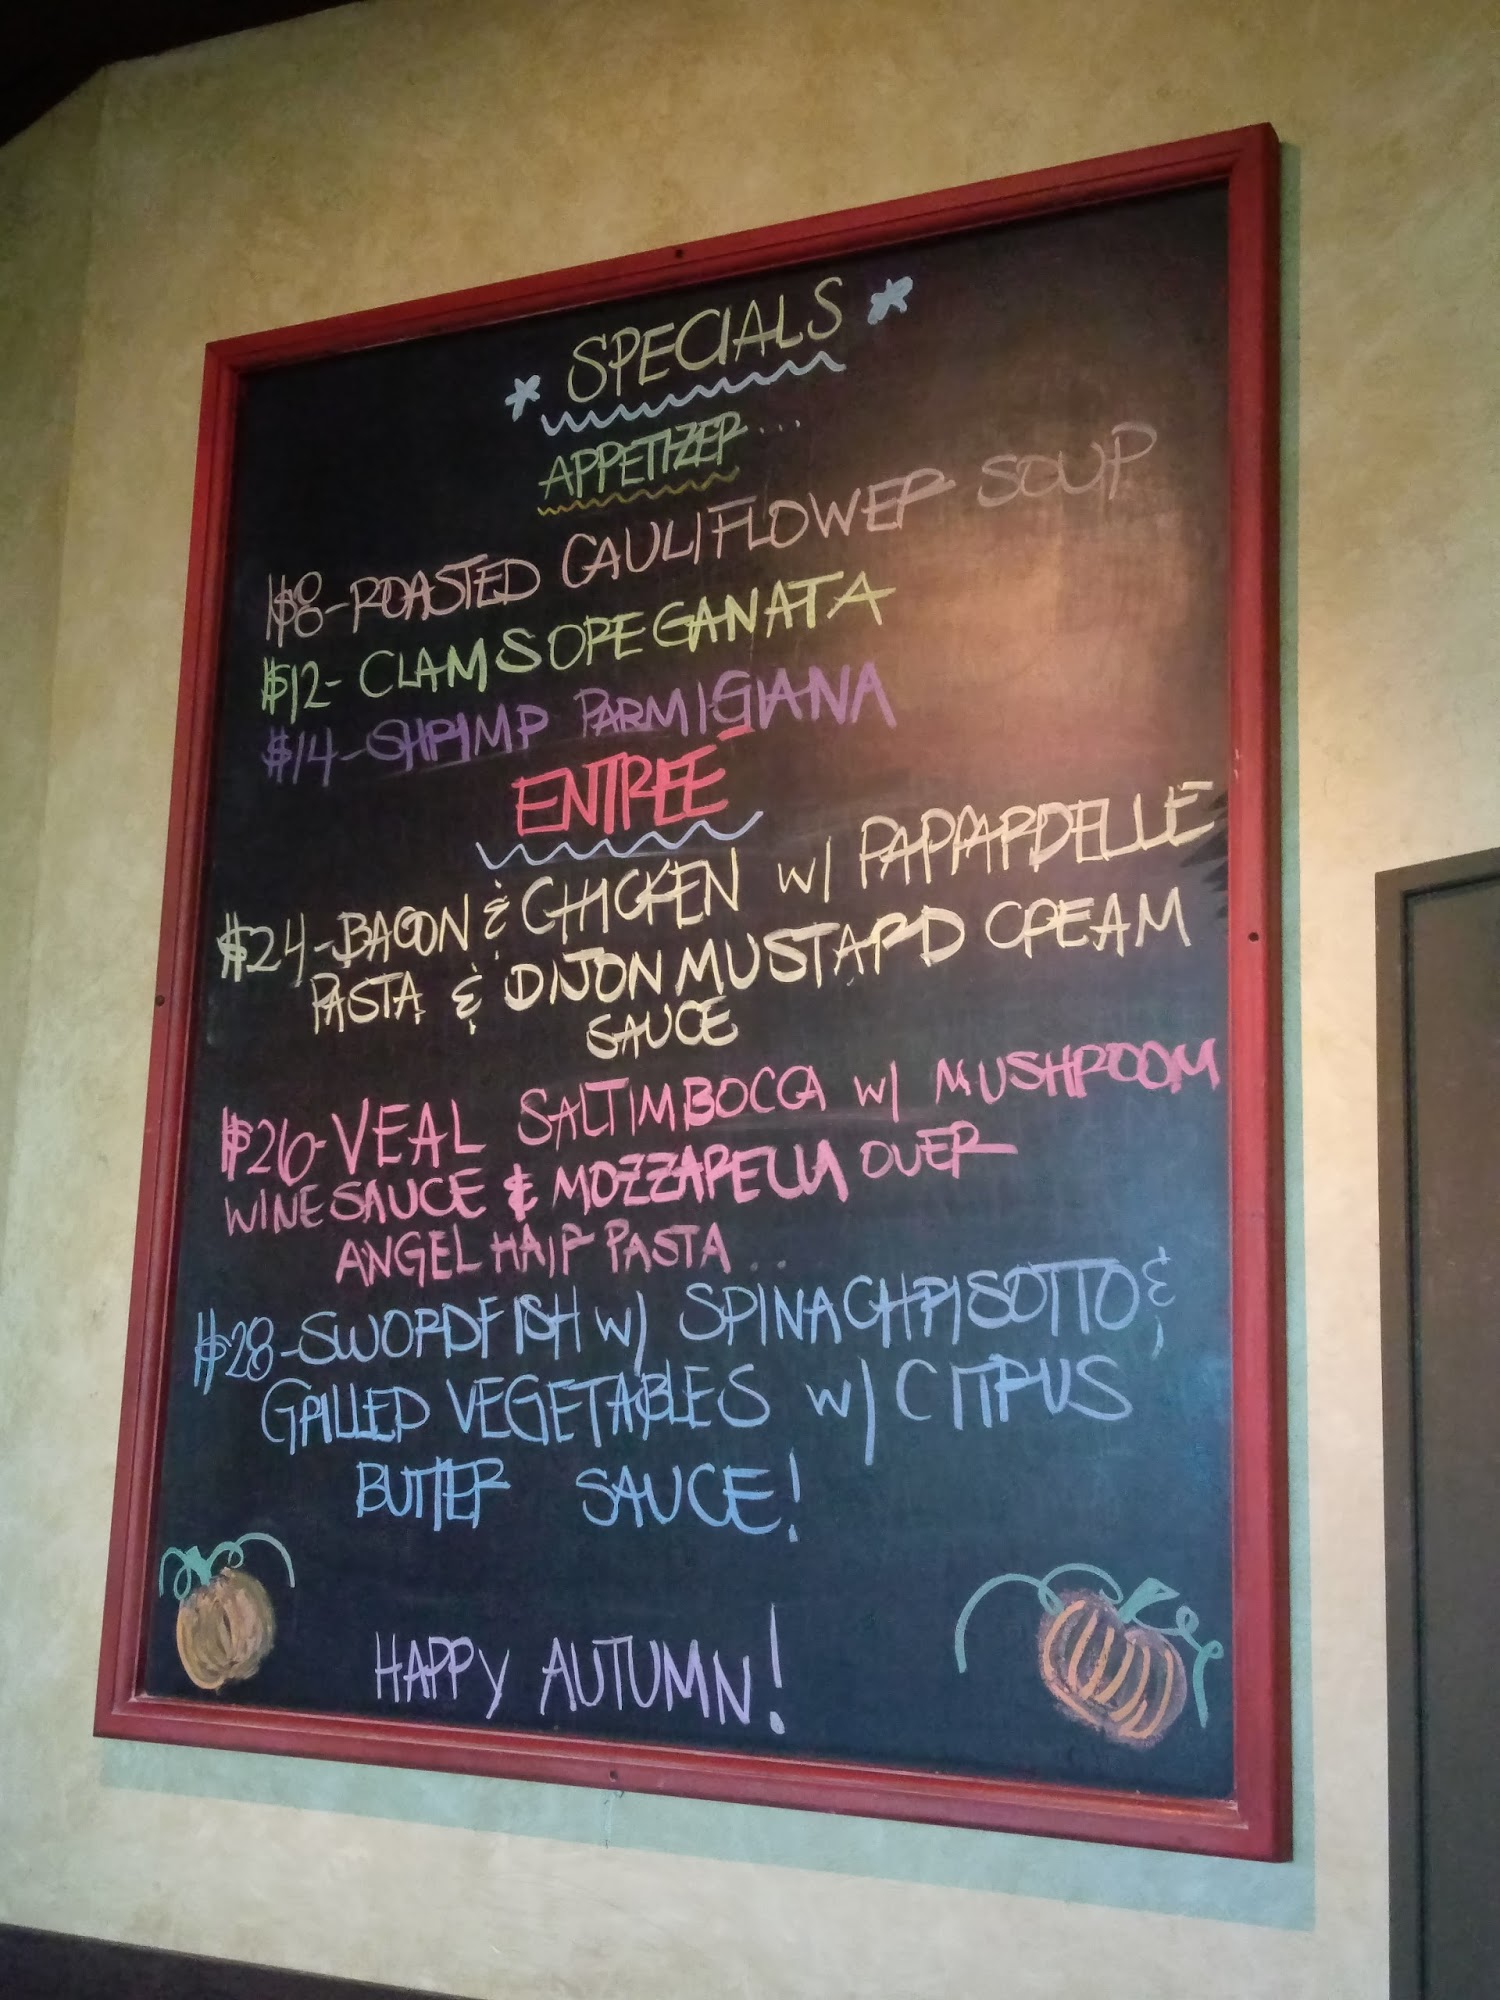 * SPECIALS *
APPETIZER...
$8-ROASTED CAULIFLOWER SOUP
$12-CLAMS OREGANATA
$14-SHRIMP PARMIGIANA
ENTREE
$24-BACON & CHICKEN W/ PAPPARDELLE
PASTA & DIJON MUSTARD CREAM
SAUCE
$26-VEAL SALTIMBOCCA W/ MUSHROOM
WINE SAUCE & MOZZARELLA OVER
ANGEL HAIR PASTA...
$28-SWORDFISH W/ SPINACH RISOTTO &
GRILLED VEGETABLES W/ CITRUS
BUTTER SAUCE!
HAPPY AUTUMN!